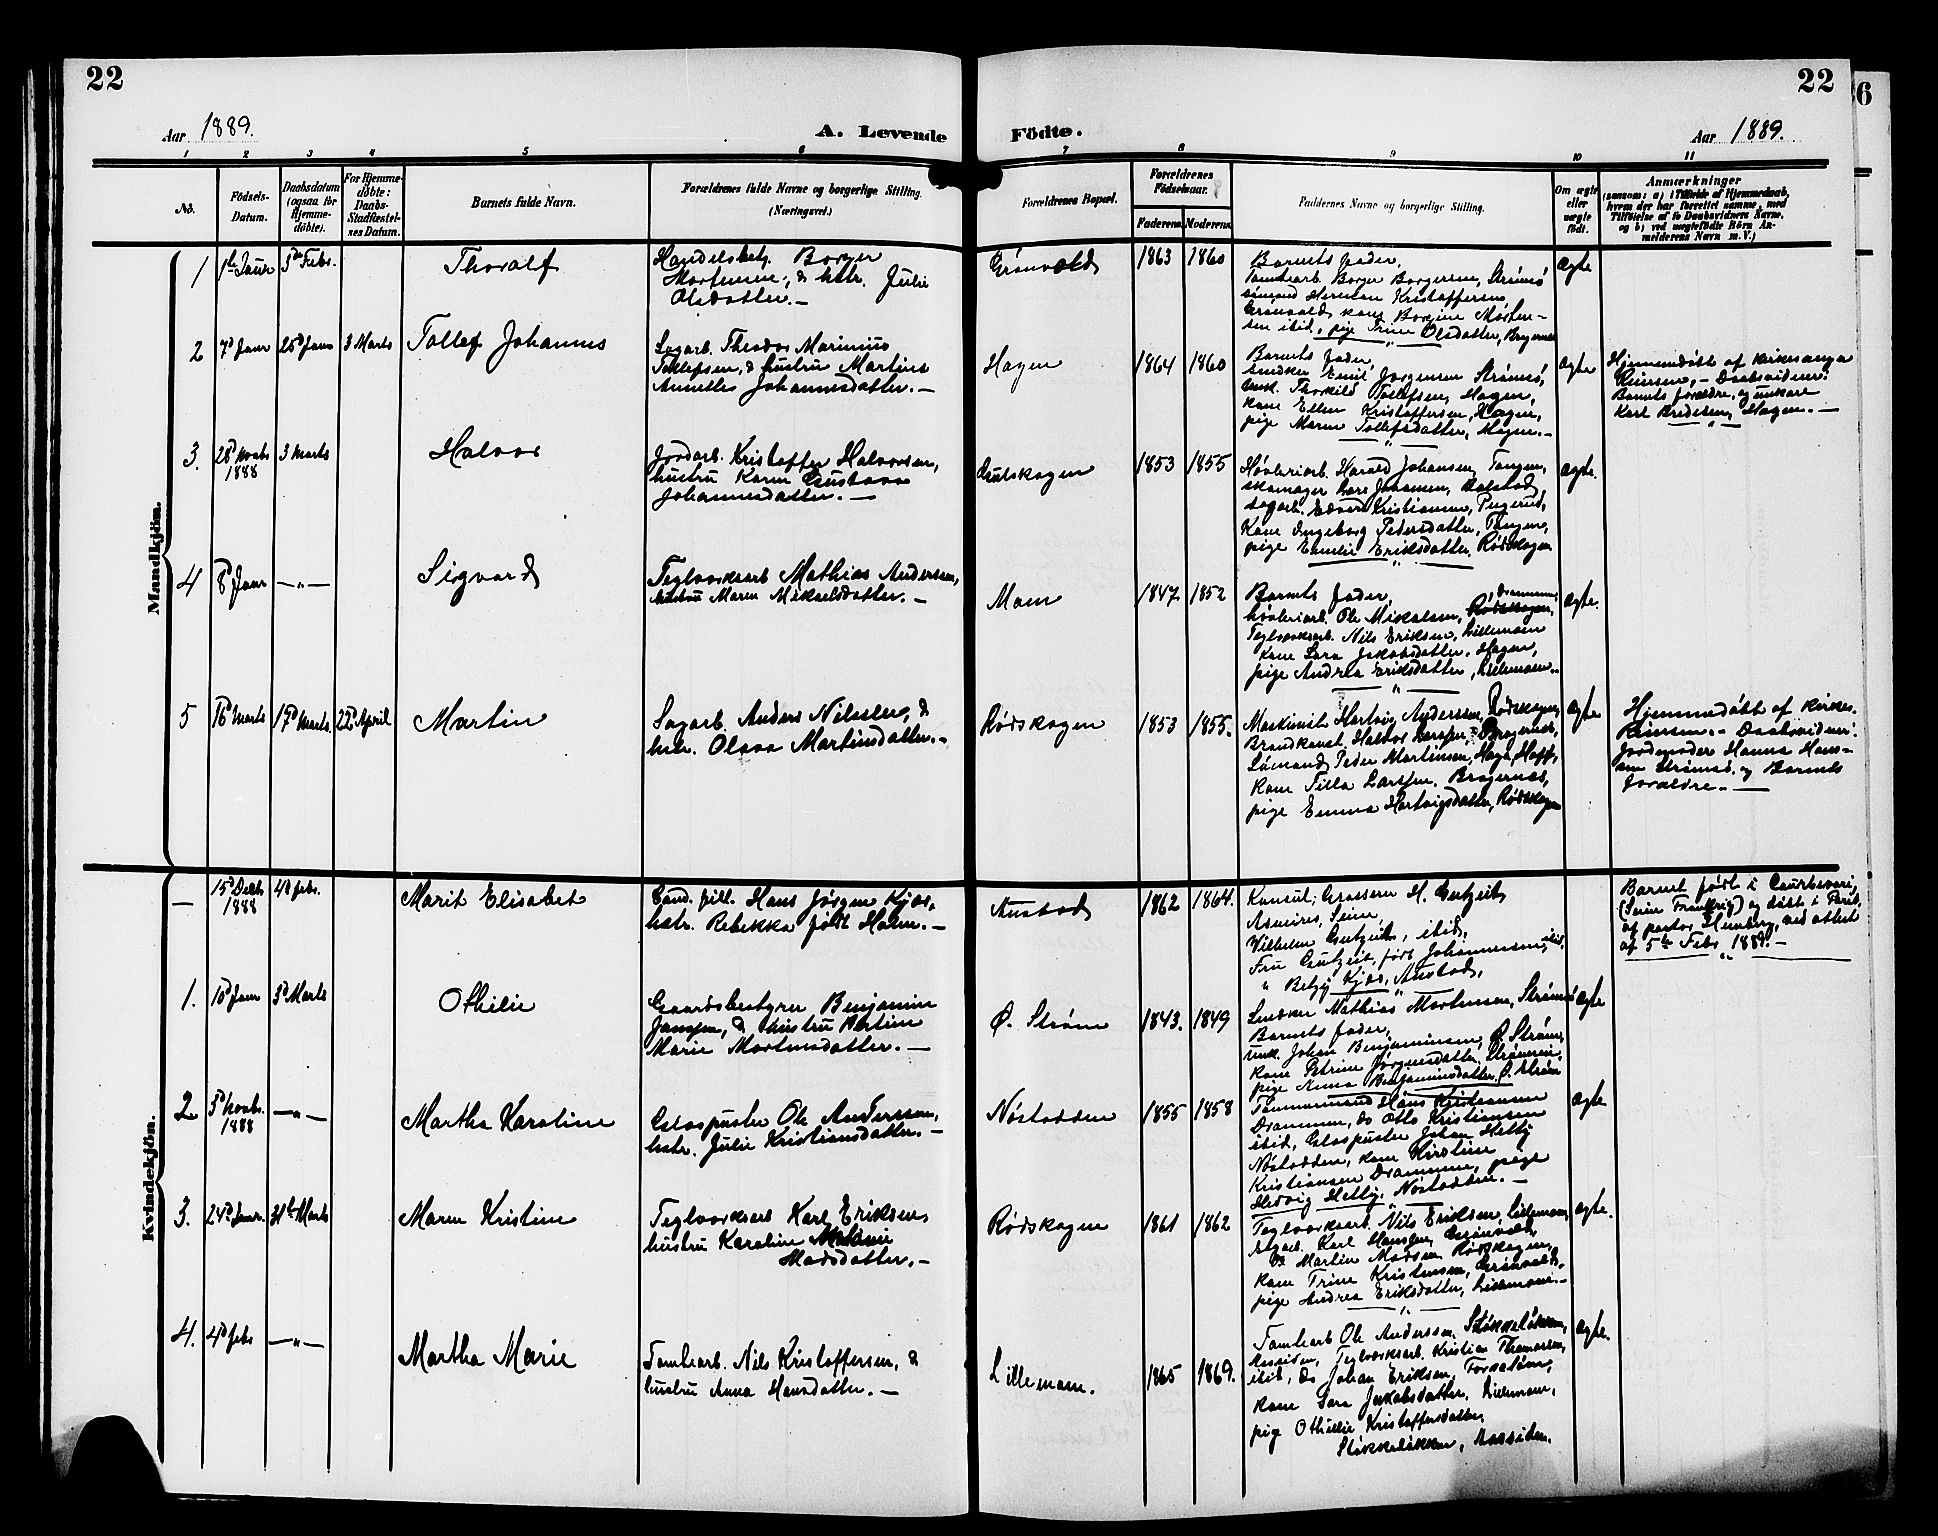 22
22
6
Aar 1889.
A. Levende Födte.
Aar 1889.
1 2 3 4 5 6 7 8 9 10 11
No.
Födsels-Datum.
Daabsdatum (ogsaa for Hjemme-döbte).
For Hjemme-döbte: Daabs-Stadfæstel-ses Datum.
Barnets fulde Navn.
Forældrenes fulde Navne og borgerlige Stilling. (Næringsvei.)
Forældrenes Bopæl.
Forældrenes Födselsaar.
Faderens
Moderens
Faddernes Navne og borgerlige Stilling.
Om ægte eller uægte födt.
Anmærkninger
(saasom: a) i Tilfælde af Hjemmedaab, hvem der har forrettet samme, med Tilföielse af to Daabsvidners Navne, og b) ved uægtefödte Börn An-melderens Navn m. V.)
Mandkjön.
1
1te Janr
3die Febr.
Thoralf
Handelsbetj. Borger
Mortensen, & hstr. Julie
Olsdatter.—
Grönvold
1863
1860
Barnets fader,
Tomtearb. Borger Borgersen, Strömsö
sömand Herman Kristoffersen,
Grönvold, kone Borgine Morten-
sen ibid, pige Trine Olsdatter, Bragernæs
Ægte
2
7d Janr
25d Janr
3 Marts
Tollef Johannes
Sagarb. Theodor Marinius
Tollefsen, & hustru Martine
Annette Johannesdatter.—
Hagen
1864
1860
Barnets fader,
snedker Emil Jørgensen Strømsø,
unk. Thorkild Tollefsen, Hagen,
kone Ellen Kristoffersen, Hagen,
pige Maren Tollefsdatter, Hagen.—
Ægte
Hjemmedöbt af kirkesanger
Reiersen, — Daabsvidner:
Barnets forældre, og unkarl
Karl Bredesen, Hagen.—
3.
28d Novbr 1888
3 Marts
Halvor
Jordarb. Kristoffer Halvorsen,
hustru Karen Gustava
Johannesdatter.—
Gulskogen
1853
1855
Høvleriarb. Harald Johansen, Tangen,
skomager Lars Johansen,
sagarb. Edvard Kristiansen,
Kone Ingeborg Pedersdatter, Tangen,
pige Emilie Eriksdatter, Rødskogen
Ægte.
4
8d Janr
—"—
Sigvard
Teglværksarb Mathias Andersen,
hustru Maren Mikaelsdatter.—
Moen
1847
1852
Barnets fader,
høvleriarb. Ole Mikalsen, Drammen,
Teglværksarb. Nils Eriksen, Lillemoen
Kone Sara Jakobsdatter, Hagen,
pige Andrea Eriksdatter, Lillemoen.
Ægte.
5
16d Marts
17d Marts
22d April
Martin
Sagarb. Anders Nilsen, &
hstr. Olava Martinsdatter.—
Rødskogen
1853
1855.
Maskinist Hartvig Anderssen, Rødskogen,
Brandkonst. Halvor Larssen, Bragernæs,
Sømand Peder Martinsen,
Kone Tilla Larssen, Bragernæs,
pige Emma Hartvigsdatter, Rødskogen
Ægte
Hjemmedöbt af Kirkes.
Reiersen.— Daabsvidner:
Jordmoder Hanna Hans-
sen Strømsø, og Barnets
Forældre.—
Kvindekjön.
—
15d Decbr 1888
4d Febr.
Marit Elisabet
Cand. phil. Hans Jørgen Kjær,
hstr. Rebekka født Holm.—
Austad
1862
1864.
Konsul, Grosserer H. Gutzeit
Asnieres, Seine,
Wilhelm Gutzeit, ibid,
Fru Gutzeit, født Johannessen, ibid,
" Betzy Kjær, Austad,
Barnet født i Courbevoie,
(Seine Frankrig) og døbt i Paris,
af pastor, ved attest
af 5te Febr 1889.—
1.
10d Janr
3d Marts
Othilie
Gaardsbestyrer Benjamin
Janssen, & hustru Bertine
Marie Mortensdatter.—
Ø. Strøm
1843.
1849
Snedker Mathias Mortensen, Strømsø
Barnets fader,
unk. Johan Benjaminsen, Ø. Strøm,
kone Petrine Jørgensdatter,
pige Anna Benjaminsdatter, Ø. Strøm
Ægte
2
3d Novbr. 1888
—"—
Martha Karoline
Glaspuster Ole Anderssen,
hstr. Julie Kristiansdatter.—
Nøstodden
1855
1858
Tømmermand Hans Kristiansen
Drammen, do Otto Kristiansen
ibid, Glaspuster Johan Helby
Nøstodden, kone Kirstine
Kristiansen Drammen, pige
Hedvig Helby, Nøstodden.—
Ægte
3.
24d Janr.
31te Marts
Maren Kristine
Teglværksarb Karl Eriksen,
hustru Karoline
Madsdatter.—
Rødskogen
1861
1862
Teglværksarb. Nils Eriksen, Lillemoen,
sagarb. Karl Hanssen, Grønvold,
do Martin Madsen Rødskogen,
kone Trine Kristensen, Grønvold,
pige Andrea Eriksdatter, Lillemoen.—
Ægte.
4.
4d Febr
—"—
Martha Marie
Tomtearb. Nils Kristoffersen, &
hustru Anna Hansdatter.—
Lillemoen.
1865
1869.
Tomtearb Ole Anderssen, Stokkeløkken,
Aassiden, Teglværksarb. Kristian Thomassen,
ibid, do Johan Eriksen,
kone Sara Jakobsdatter, Lillemoen,
pige Othilie Kristoffersdatter,
Stokkeløkken, Aassiden.
Ægte.